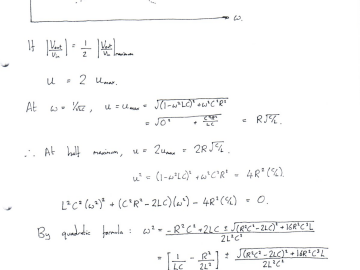 ω.
If |Vout/Vin| = 1/2 |Vout/Vin|maximum
u = 2 umax.
At ω = 1/√LC, u = umax = √((1-ω²LC)² + ω²C²R²)
= √(0² + C²R²/LC) = R√(C/L).
∴ At half maximum, u = 2umax = 2R√(C/L).
u² = (1-ω²LC)² + ω²C²R² = 4R²(C/L)
L²C²(ω²)² + (C²R² - 2LC)(ω²) - 4R²(C/L) = 0.
By quadratic formula: ω² = (-R²C² + 2LC ± √((R²C² - 2LC)² + 16R²C³L)) / 2L²C²
= [1/LC - R²/2L²] ± √((R²C² - 2LC)² + 16R²C³L) / 2L²C²